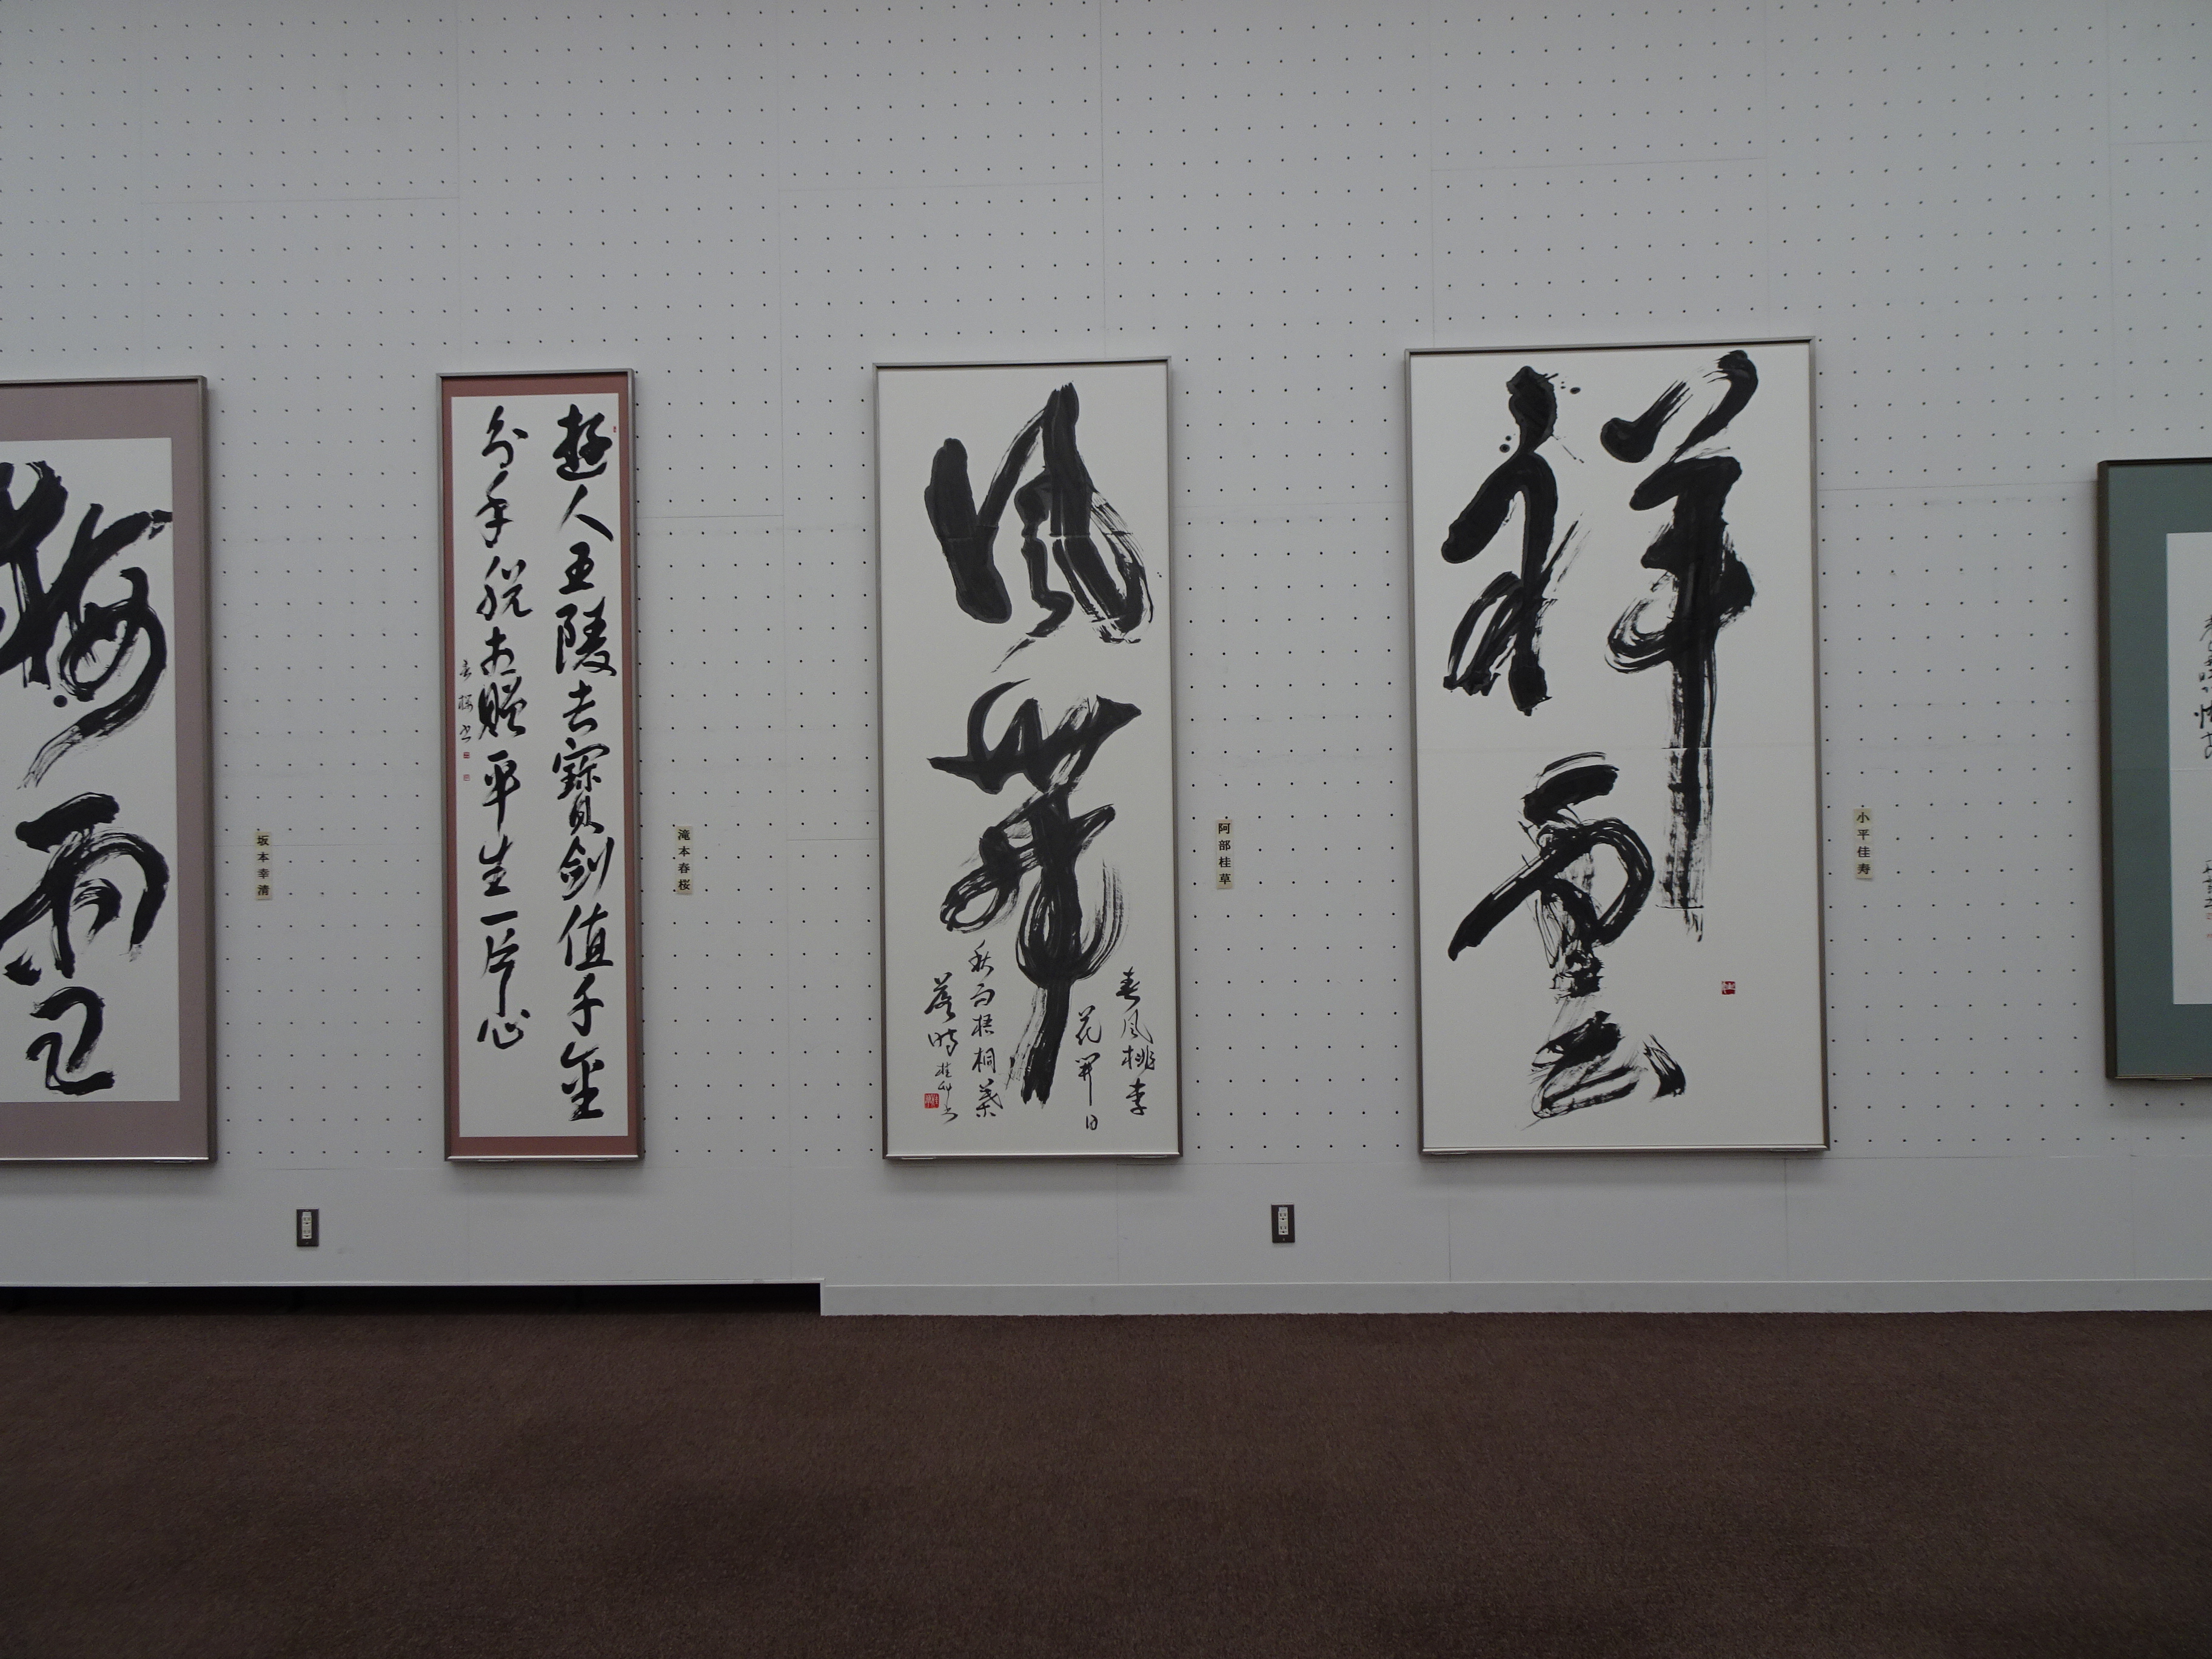 梅
坂本幸清
遊人五陵去寶剣値千金
分手脱相贈平生一片心
春桜書
滝本春桜
風
春風桃李
花開日
秋雨梧桐葉
落時
桂艸書
阿部桂草
祥
雲
小平佳寿